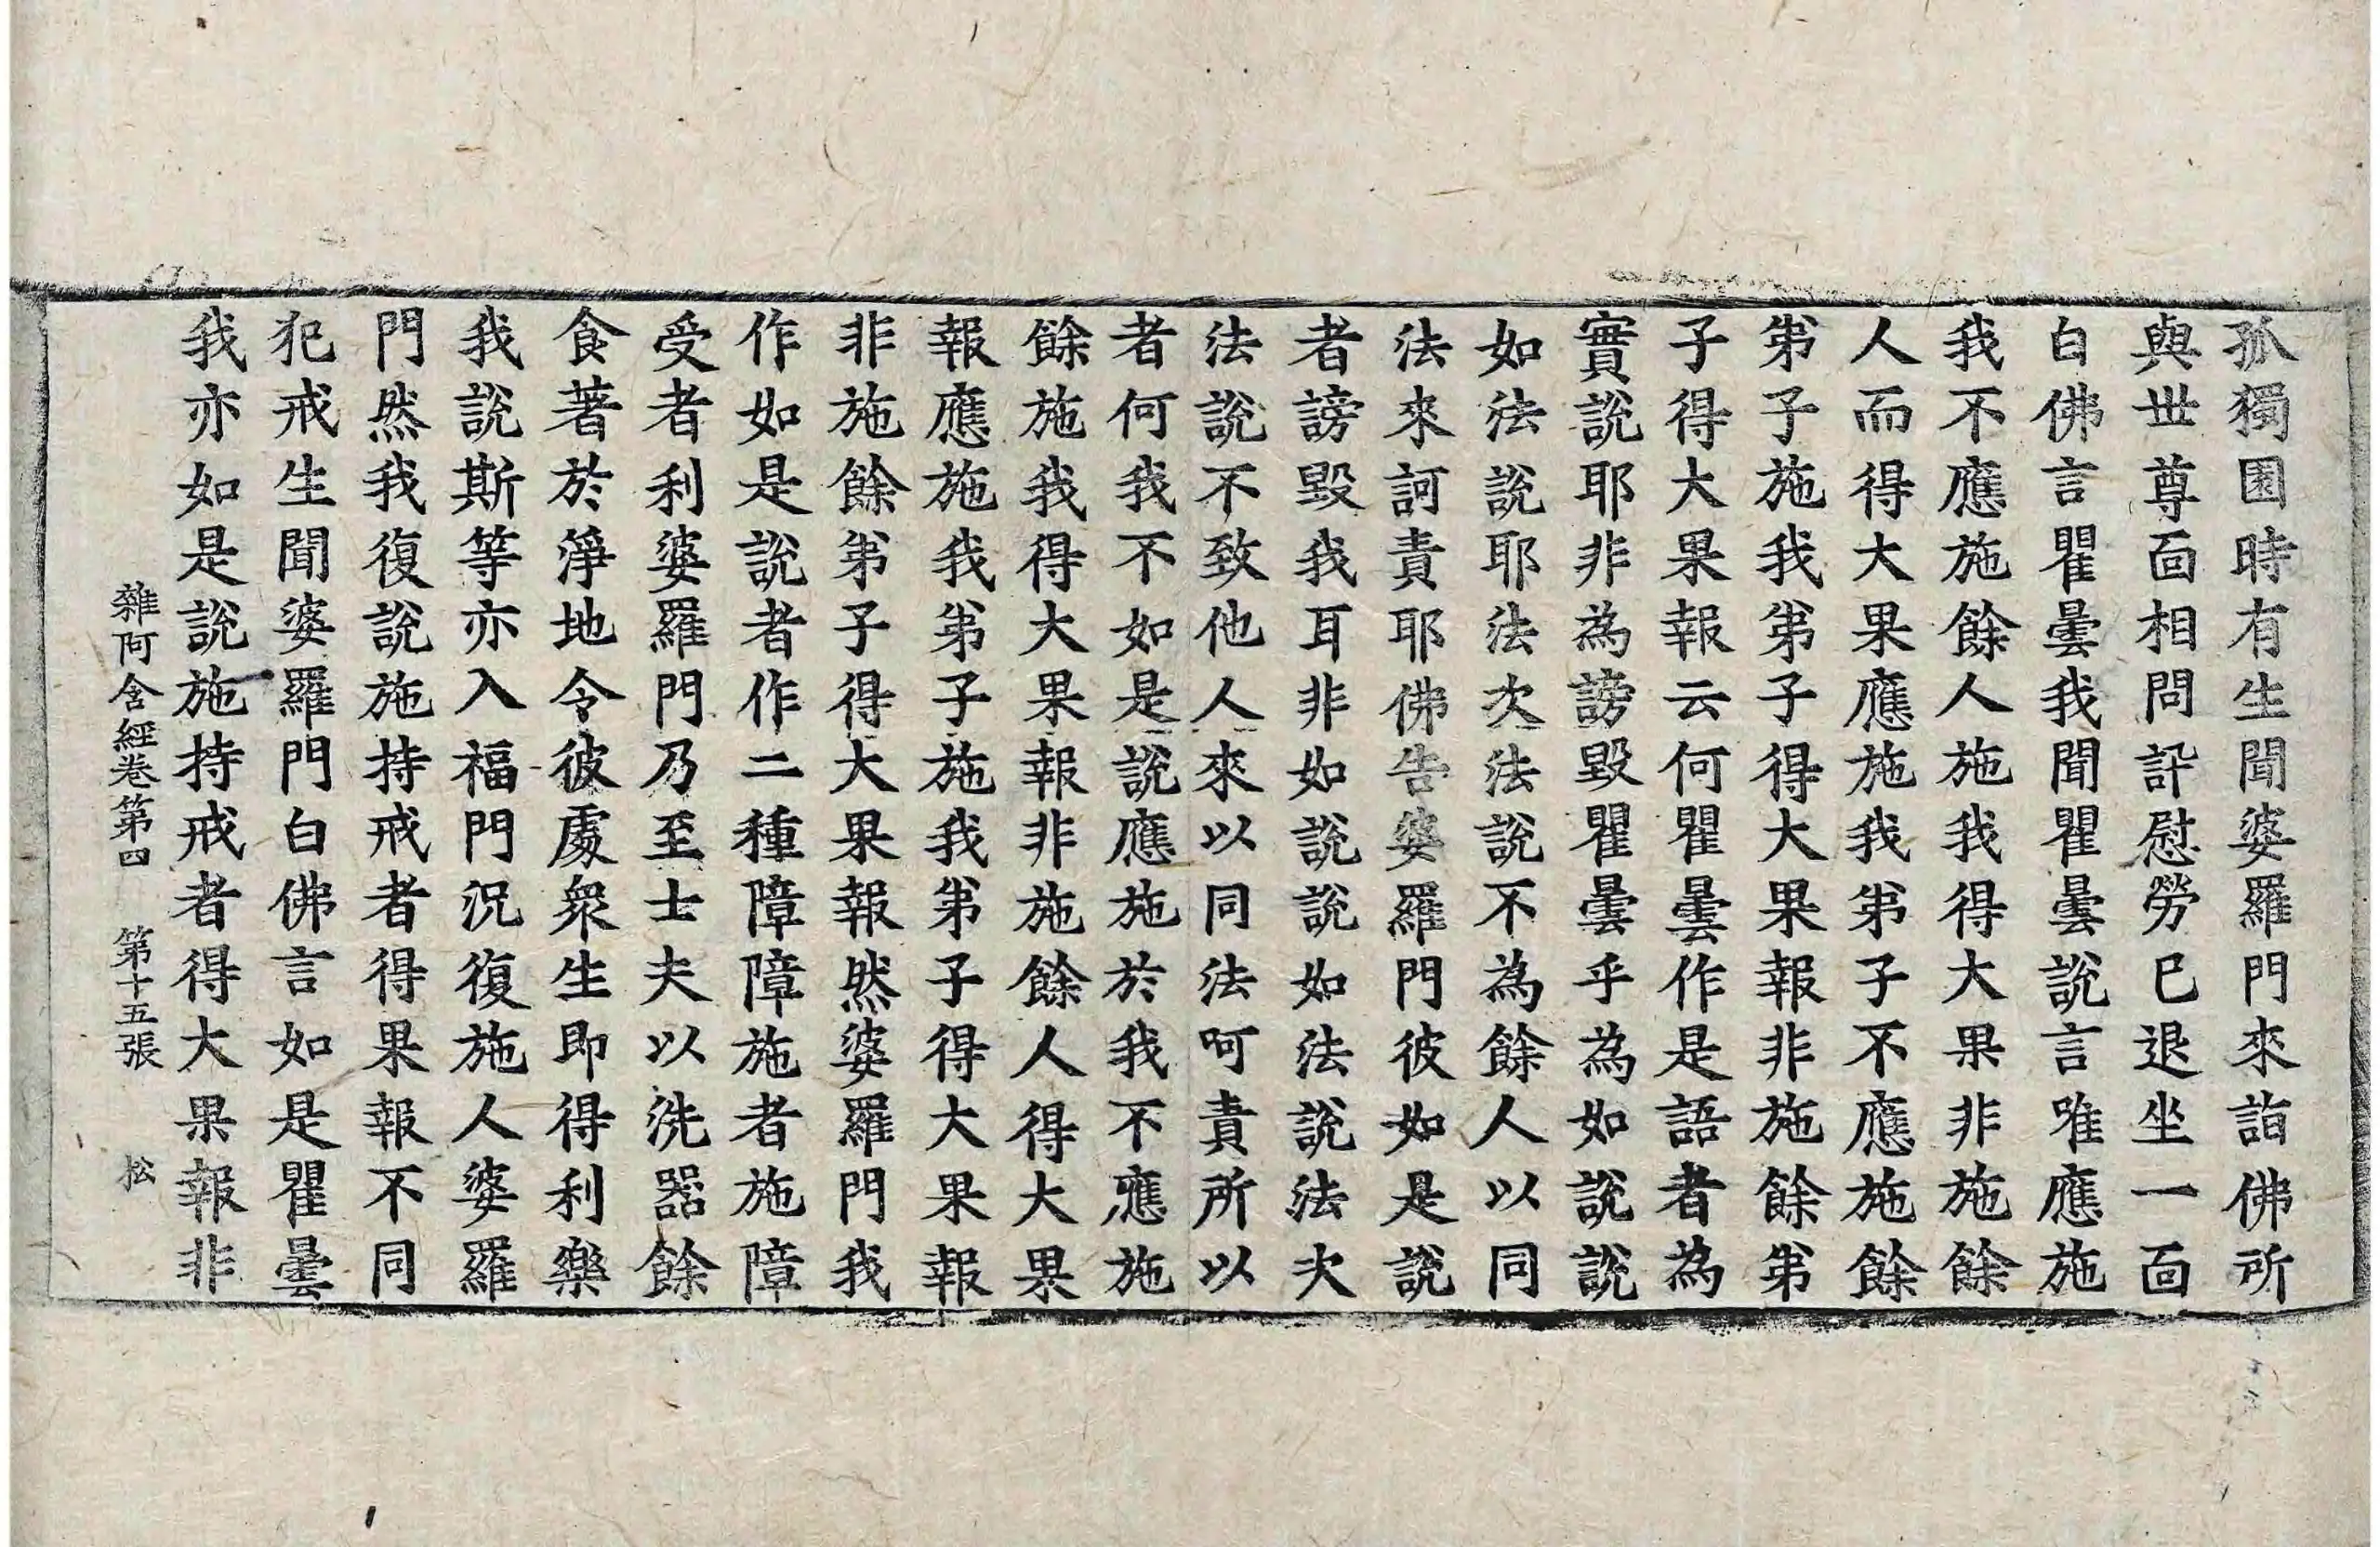 孤獨園時有生聞婆羅門來詣佛所
與世尊面相問訊慰勞已退坐一面
白佛言瞿曇我聞瞿曇說言唯應施
我不應施餘人施我得大果非施餘
人而得大果應施我弟子不應施餘
弟子施我弟子得大果報非施餘弟
子得大果報云何瞿曇作是語者為
實說耶非為謗毀瞿曇乎為如說說
如法說耶法次法說不為餘人以同
法來訶責耶佛告婆羅門彼如是說
者謗毀我耳非如說說如法說法次
法說不致他人來以同法呵責所以
者何我不如是說應施於我不應施
餘施我得大果報非施餘人得大果
報應施我弟子施我弟子得大果報
非施餘弟子得大果報然婆羅門我
作如是說者作二種障障施者施障
受者利婆羅門乃至士夫以洗器餘
食著於淨地令彼處眾生即得利樂
我說斯等亦入福門況復施人婆羅
門然我復說施持戒者得果報不同
犯戒生聞婆羅門白佛言如是瞿曇
我亦如是說施持戒者得大果報非
雜阿含經卷第四 第十五張 松